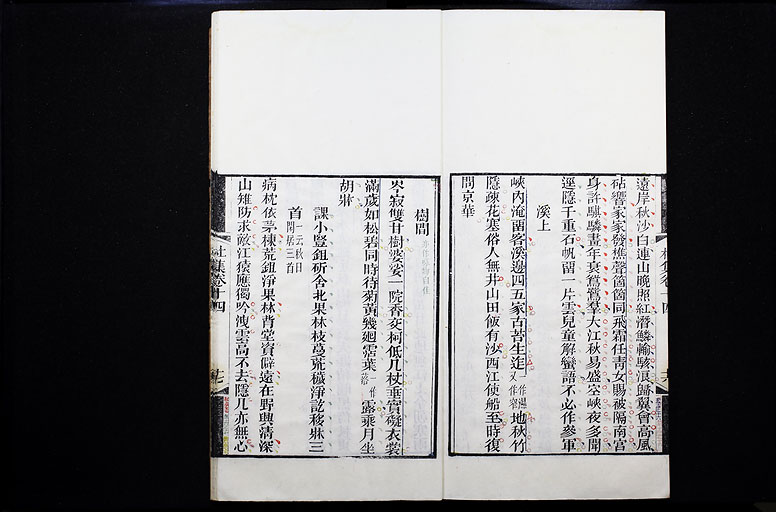 遠岸秋沙白連山晚照紅潛鱗輸駭浪歸翼會高風
砧響家家發樵聲箇箇同飛霜任青女賜被隔南宮
身許騏驎畫年衰鴛鷺羣大江秋易盛空峽夜多聞
逕隱千重石帆留一片雲兒童解蠻語不必作參軍
溪上
峽內淹留客溪邊四五家古苔生迮又作窄地秋竹
隱疎花塞俗人無井山田飯有沙西江使船至時復
問京華
樹間
岑寂雙甘樹婆娑一院香交柯低几杖垂實礙衣裳
滿歲如松碧同時待菊黃幾廻霑葉一作露乘月坐
胡牀
課小豎鉏斫舍北果林枝蔓荒穢淨訖移牀三
首一云秋日閒居三首
病枕依茅棟荒鉏淨果林背堂資僻遠在野興清深
山雉防求敵江猿應獨吟洩雲高不去隱几亦無心
杜集卷十四